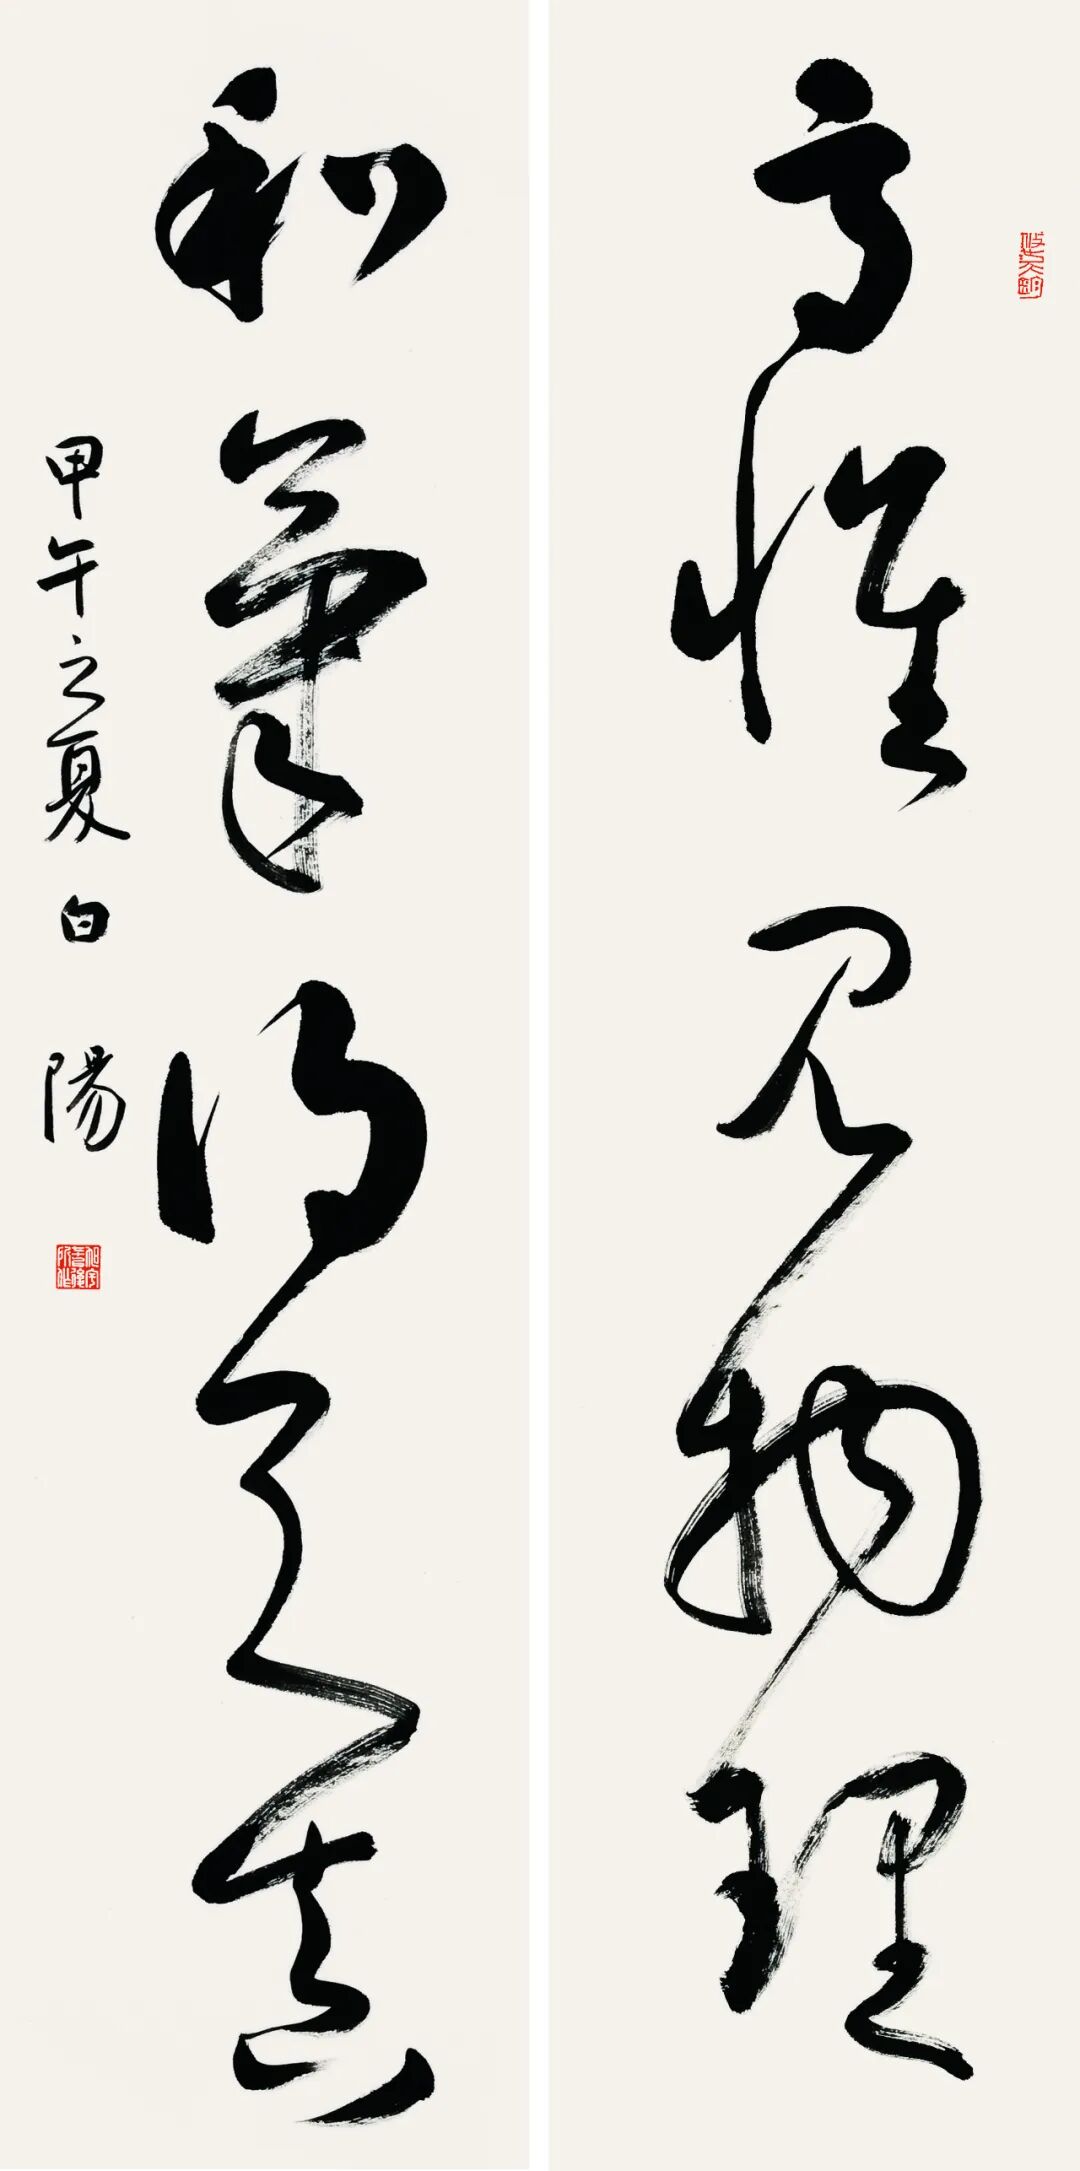 高懷見物理
和氣得天真
甲午之夏白陽